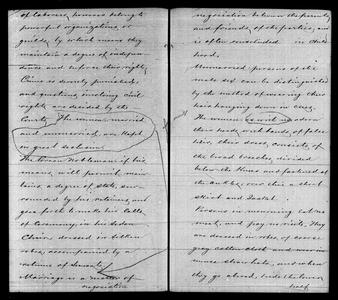 of laborers, persons belong to
powerful organizations, or
guilds, by which means they
maintain a degree of independ-
dence and enforce their rights.
Crime is severely punished,
and questions involving civil
rights are decided by the
Courts. The women married
and unmarried, are kept
in great seclusion.
The Corean Nobleman if his
means, will permit, main-
tains a degree of state, sur-
rounded by his retainers, and
goes forth to make his Calls
of Ceremony, in his Sedan
Chair dressed in silken
robes, accompanied by a
retinue of Servants.
Marriage is a matter of
negotiation
negotiation between the parents
and friends of the parties, and
is often concluded in child
hood.
Unmarried persons of the
male sex can be distinguished
by the method of wearing their
hair hanging down in cues.
The women do not adorn
their heads with bands, of false
hair, their dress, consists, of
the broad breeches, divided
below the knees and fastened at
the ankles, over this a short
skirt and Jacket.
Persons in mourning eat no
meat, and pay no visits. They
are dressed in robes, of coarse
gray cotton cloth and
they go abroad, hide the lower
half